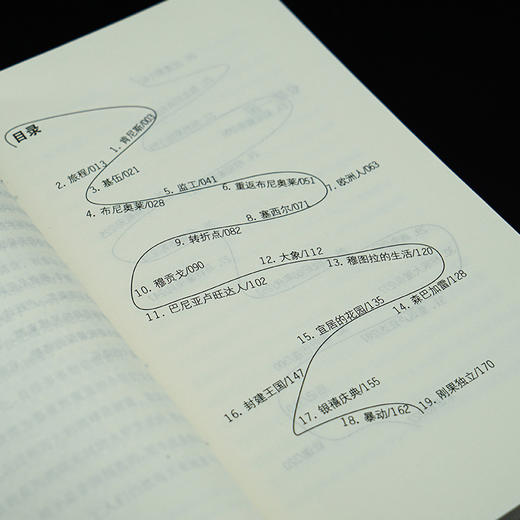 目录
1. 肯尼斯/003
2. 旅程/013
3. 基伍/021
4. 布尼奥莱/028
5. 监工/041
6. 重返布尼奥莱/051
7. 欧洲人/063
8. 塞西尔/071
9. 转折点/082
10. 穆贡戈/090
11. 巴尼亚卢旺达人/102
12. 大象/112
13. 穆图拉的生活/120
14. 森巴加雷/128
15. 宜居的花园/135
16. 封建王国/147
17. 银禧庆典/155
18. 暴动/162
19. 刚果独立/170